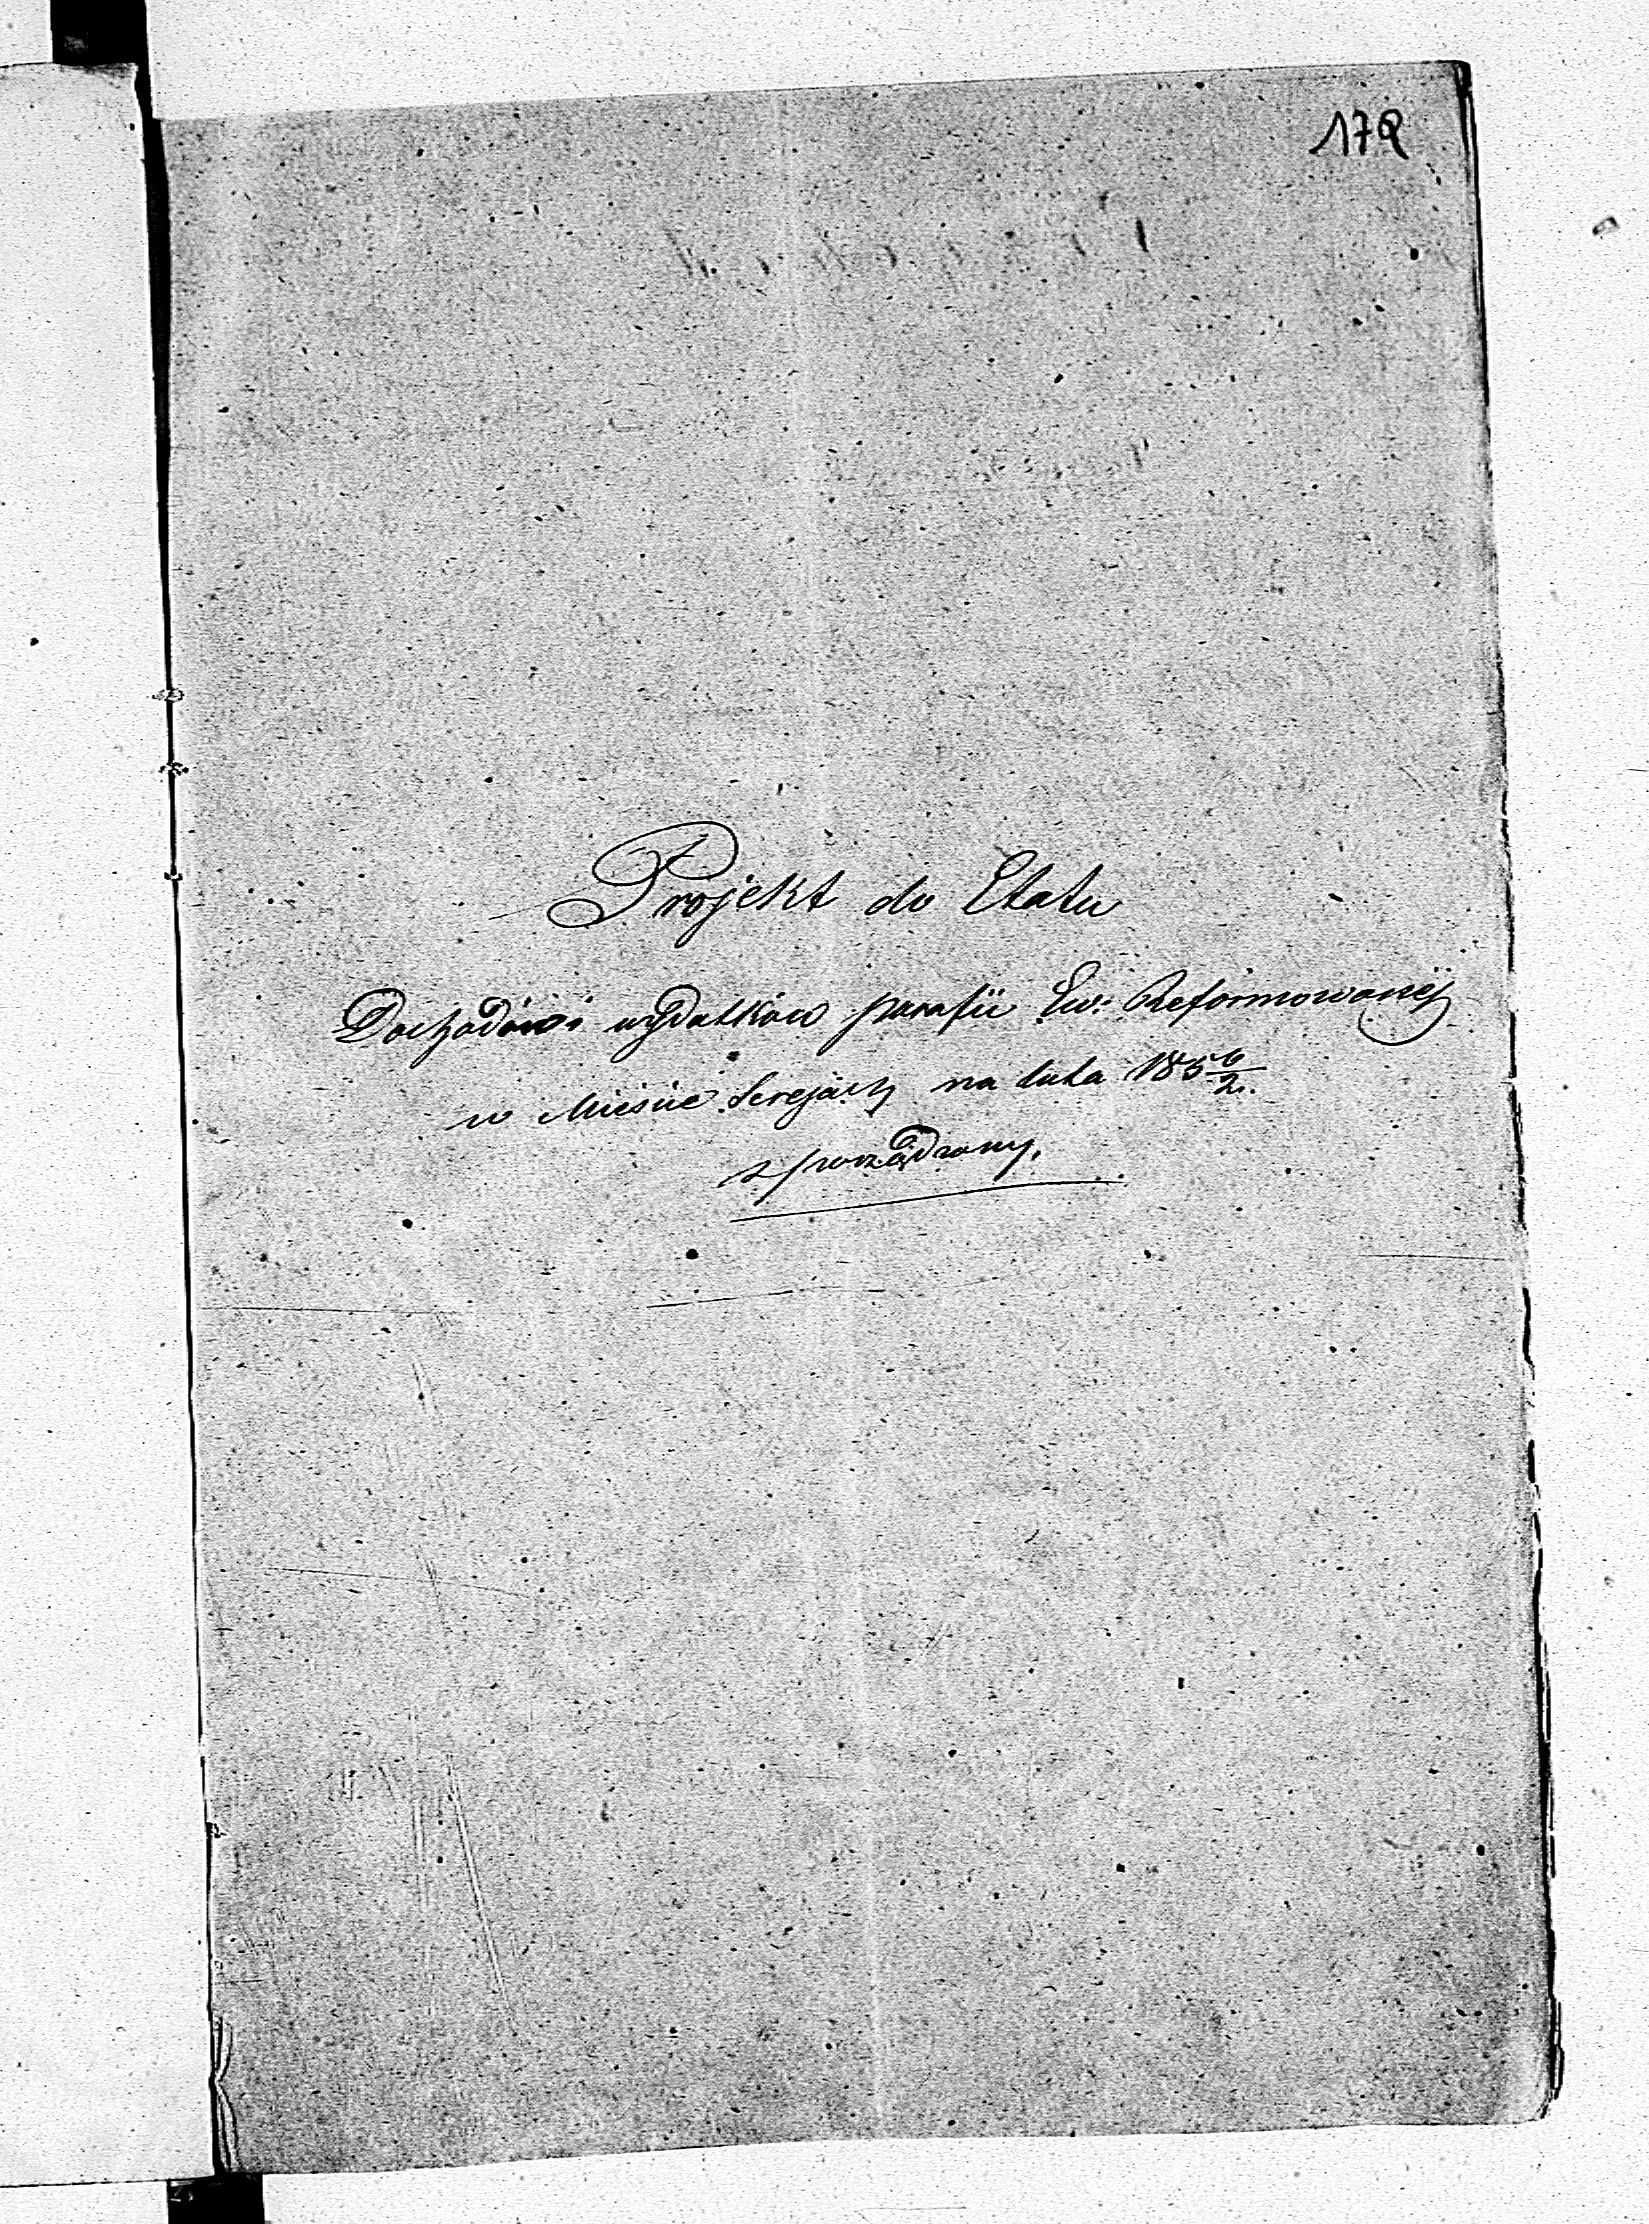 172
Projekt do Etatu
Dochodów i wydatków parafii Ew: Reformowanéj
w Mieście Serejach na lata 185 6/2.
sporządzony.